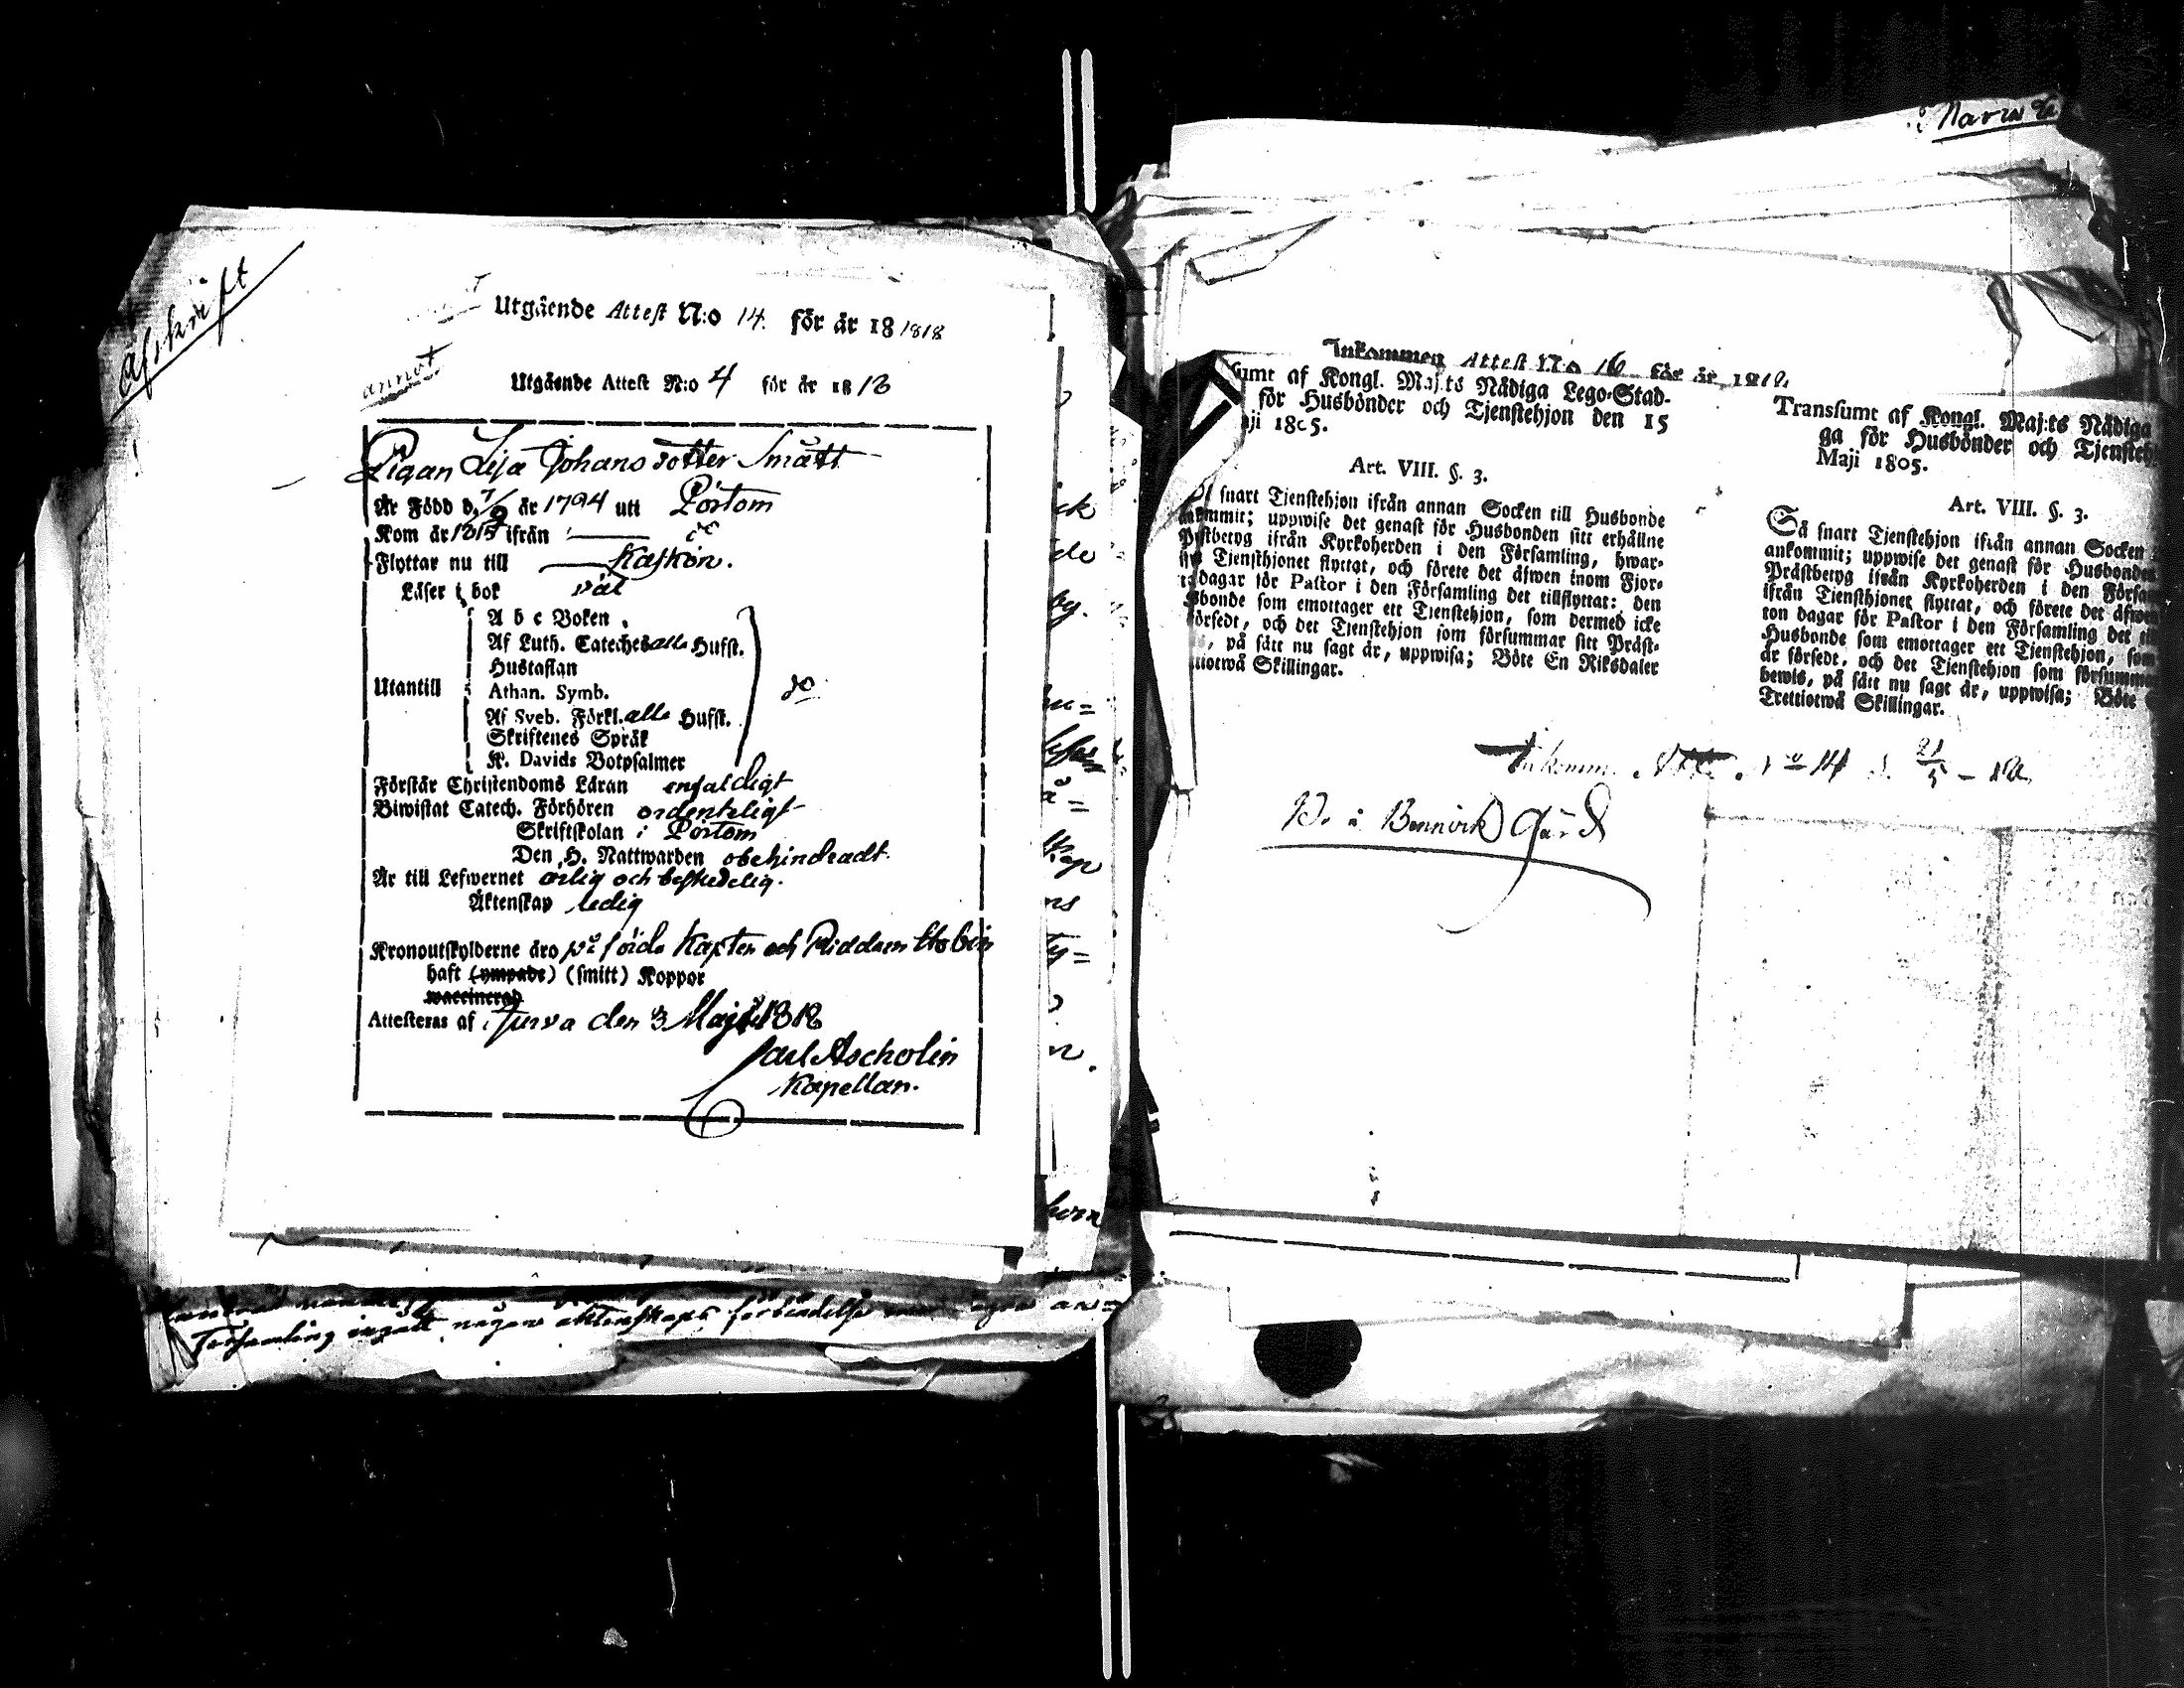 Afskrift
Utgående Attest N:o 14. för år 18 1818
annot
Utgående Attest N:o 4 för år 18 18
Pigan Lisa Johans dotter Smått
Är Född d. 7/9 år 1794 uti Pörtom
Kom år 1815 ifrån do
Flyttar nu till Kaskön.
Läser i bok väl
A b c Boken
Af Luth. Cateches alla Hufst.
Hustaflan
Utantill Athan. Symb. do
Af Sveb. Förkl. alla Hufst.
Skriftenes Språk
K. Davids Botpsalmer
Förstår Christendoms Läran enfaldigt
Biwistat Catech. Förhören ordenteligt
Skriftskolan i Pörtom
Den H. Nattwarden obehindradt.
Är till Lefwernet ärlig och beskedelig.
Äktenskap ledig
Kronoutskylderne äro på förde Kapten och Riddaren
haft (ympade) (smitt) Koppor
waccinerad
Attesteras af Jurva den 3 Maji 1818
Carl Ascholin
Kapellan.
Församling ingått någon äktenskaps förbindelse
Inkommen Attest N:o 16 för år 1818.
sumt af Kongl. Maj:ts Nådiga Lego-Stad-
för Husbönder och Tjenstehjon den 15
aji 1805.
Art. VIII. §. 3.
snart Tjenstehjon ifrån annan Socken till Husbonde
ankommit; uppwise det genast för Husbonden sitt erhållne
Prästbetyg ifrån Kyrkoherden i den Församling, hwar-
ifrån Tjensthjonet flyttat, och förete det äfwen inom Fjor-
ton dagar för Pastor i den Församling det tillflyttat: den
Husbonde som emottager ett Tjenstehjon, som dermed icke
är försedt, och det Tjenstehjon som försummar sitt Präst-
, på sätt nu sagt är, uppwisa; Böte En Riksdaler
Trettiotwå Skillingar.
Transsumt af Kongl. Maj:ts Nådiga
ga för Husbönder och Tjensteh
Maji 1805.
Art. VIII. §. 3.
Så snart Tjenstehjon ifrån annan Socken
ankommit; uppwise det genast för Husbonden
Prästbetyg ifrån Kyrkoherden i den Församl
ifrån Tjensthjonet flyttat, och förete det äfwen
ton dagar för Pastor i den Församling det till
Husbonde som emottager ett Tjenstehjon, som
är försedt, och det Tjenstehjon som försummar
bewis, på sätt nu sagt är, uppwisa; Böte
Trettiotwå Skillingar.
Inkomm. Att. N:o 14 d. 21/5 - 18
Bennvik Gård